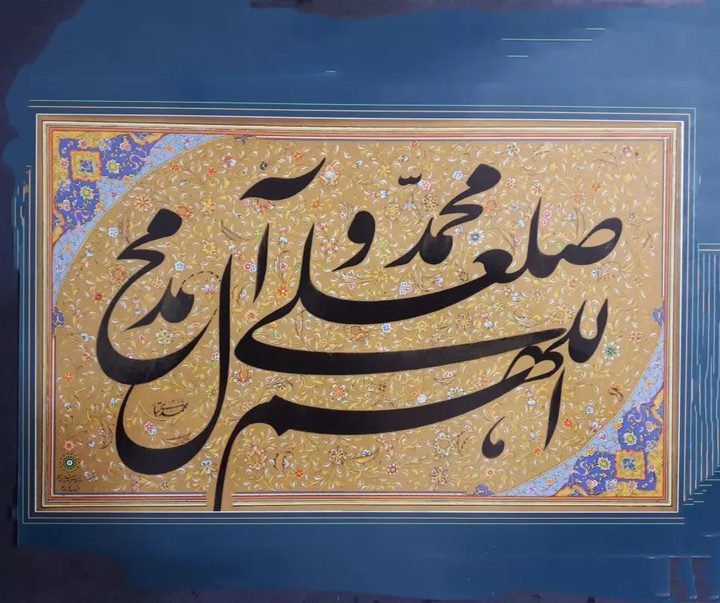 اللهم صل علی محمّد و آل محمد